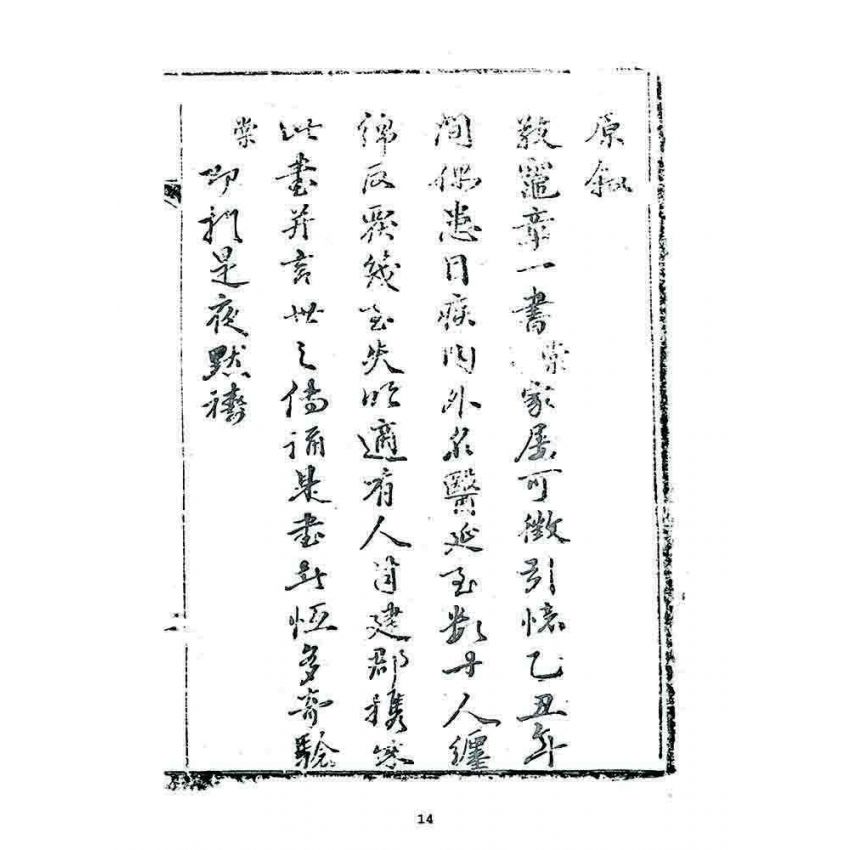 原叙
敬竈章一書棠家居可徵引憶乙丑年
間偶患目疾內外求醫延至數十人纏
綿反覆幾至失明適有人自建郡携
此書并言世之傳誦是書者恆多奇驗
棠
即於是夜默禱
14